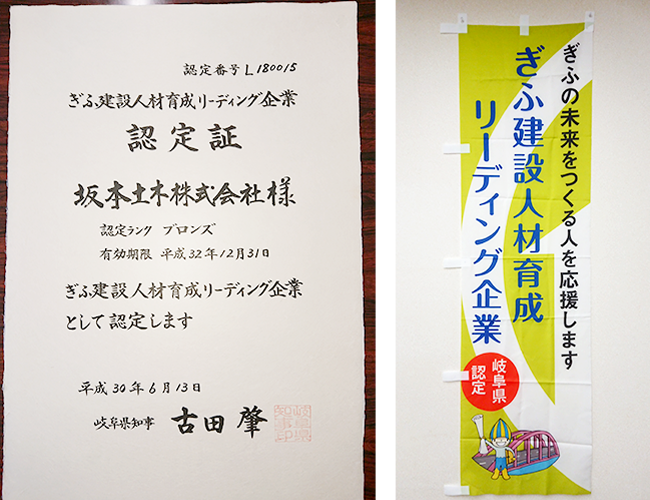 認定番号L180015
ぎふ建設人材育成リーディング企業
認定証
坂本土木株式会社様
認定ランク ブロンズ
有効期限 平成32年12月31日
ぎふ建設人材育成リーディング企業
として認定します
平成30年6月13日
岐阜県知事 古田肇
岐阜県
知事印
ぎふの未来をつくる人を応援します
ぎふ建設人材育成
リーディング企業
岐阜県
認定